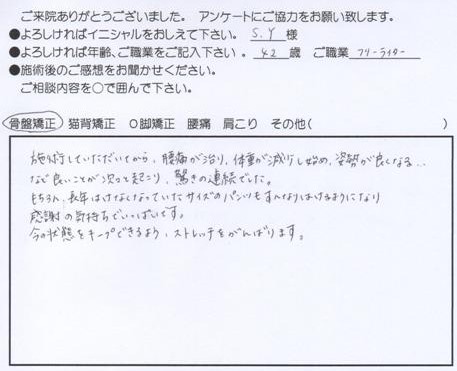 ご来院ありがとうございました。 アンケートにご協力をお願い致します。
●よろしければイニシャルをおしえて下さい。 S.Y 様
●よろしければ年齢、ご職業をご記入下さい。 42 歳 ご職業 フリーライター
●施術後のご感想をお聞かせください。
ご相談内容を○で囲んで下さい。
骨盤矯正 猫背矯正 O脚矯正 腰痛 肩こり その他( )
施術していただいてから、腰痛が治り、体重が減りし始め、姿勢が良くなる...
など良いことが次々と起こり、驚きの連続でした。
もちろん、長年はけなくなっていたサイズのパンツもすんなりはけるようになり
感謝の気持ちでいっぱいです。
今の状態をキープできるよう、ストレッチをがんばります。